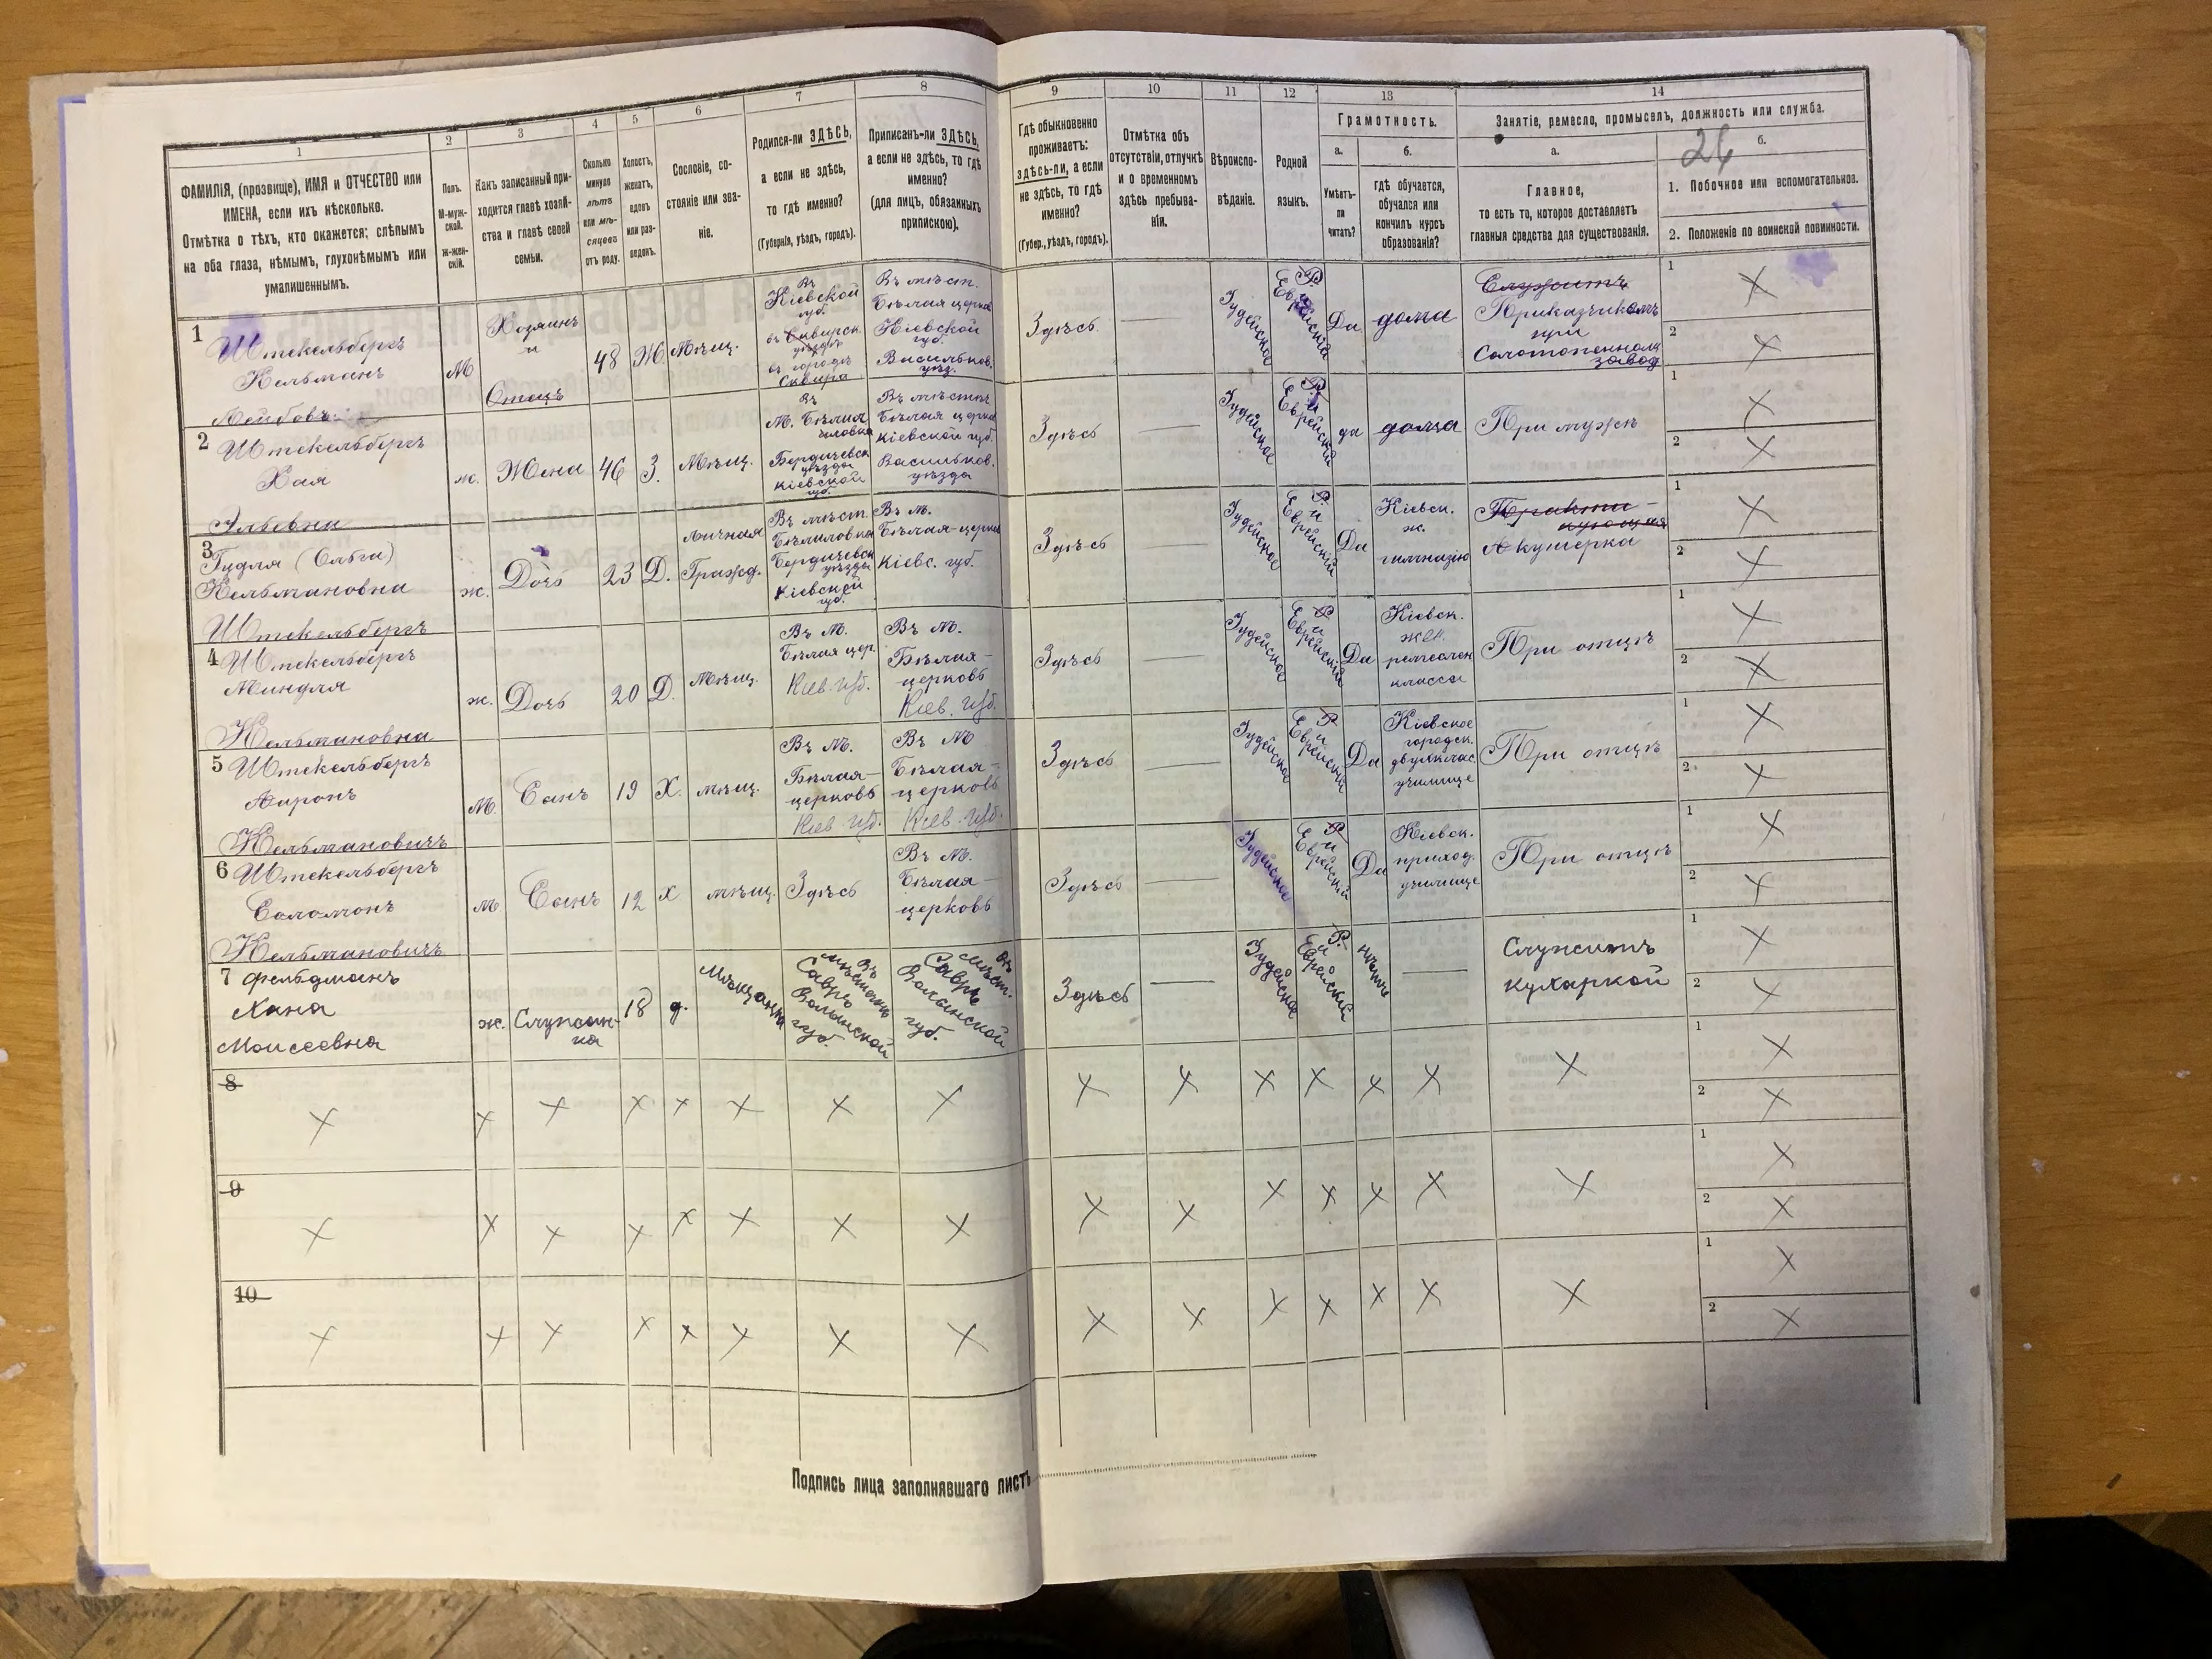 1
ФАМИЛІЯ, (прозвище), ИМЯ и ОТЧЕСТВО или
ИМЕНА, если ихъ нѣсколько.
Отмѣтка о тѣхъ, кто окажется: слѣпымъ
на оба глаза, нѣмымъ, глухонѣмымъ или
умалишеннымъ.
2
Полъ.
М-муж-
ской.
Ж-жен-
скій.
3
Какъ записанный при-
ходится главѣ хозяй-
ства и главѣ своей
семьи.
4
Сколько
минуло
лѣтъ
или мѣ-
сяцевъ
отъ роду.
5
Холостъ,
женатъ,
вдовъ
или раз-
веденъ.
6
Сословіе, со-
стояніе или зва-
ніе.
7
Родился-ли ЗДѢСЬ,
а если не здѣсь,
то гдѣ именно?
(Губернія, уѣздъ, городъ).
8
Приписанъ-ли ЗДѢСЬ,
а если не здѣсь, то гдѣ
именно?
(для лицъ, обязанныхъ
припискою).
9
Гдѣ обыкновенно
проживаетъ:
здѣсь-ли, а если
не здѣсь, то гдѣ
именно?
(Губер., уѣздъ, городъ).
10
Отмѣтка объ
отсутствіи, отлучкѣ
и о временномъ
здѣсь пребыва-
ніи.
11
Вѣроиспо-
вѣданіе.
12
Родной
языкъ.
13
Грамотность.
а.
Умѣетъ-
ли
читать?
б.
гдѣ обучается,
обучался или
кончилъ курсъ
образованія?
14
Занятіе, ремесло, промыселъ, должность или служба.
а.
Главное,
то есть то, которое доставляетъ
главныя средства для существованія.
24
б.
1. Побочное или вспомогательное.
2. Положеніе по воинской повинности.
1
Штекельбергъ
Кельманъ
Лейбовъ
М
Хозяинъ
и
Отецъ
48
Ж.
Мѣщ.
Въ
Кіевской
губ.
въ Сквирск.
уѣздѣ
въ городѣ
Сквира
Въ мѣст.
Бѣлая церковь
Кіевской
губ.
Васильков.
уѣз.
Здѣсь
Іудейское
Р.
Еврейскій
Да
дома
Служитъ
Приказчикомъ
при
Солотопенномъ
завод
1 X
2 X
2
Штекельбергъ
Хая
Эльевна
ж.
Жена
46
З.
Мѣщ.
Въ
М. Бѣлиловка
Бердичевск
уѣзда
Кіевской
губ.
Въ мѣстѣ
Бѣлая церковь
Кіевской губ.
Васильков.
уѣзда
Здѣсь
Іудейское
Р.
и
Еврейскій
да
дома
При мужѣ
1 X
2 X
3
Гудля (Ольга)
Кельмановна
Штекельбергъ
ж.
Дочь
23
Д.
личная
Гражд.
Въ мѣст.
Бѣлиловка
Бердичевск
уѣзда
Кіевской
губ.
Въ М.
Бѣлая-церковь
Кіевс. губ.
Здѣсь
Іудейское
Р.
и
Еврейскій
Да
Кіевск.
ж.
гимназію
Практи-
кующая
Акушерка
1 X
2 X
4
Штекельбергъ
Миндля
Кельмановна
ж.
Дочь
20
Д.
Мѣщ.
Въ М.
Бѣлая цер.
Кіев. губ.
Въ М.
Бѣлая-
церковь
Кіев. губ.
Здѣсь
Іудейское
Р.
и
Еврейскій
Да
Кіевск.
жен.
ремеслен
класса
При отцѣ
1 X
2 X
5
Штекельбергъ
Аиронъ
Кельмановичъ
М.
Сынъ
19
Х.
мѣщ.
Въ М.
Бѣлая-
церковь
Кіев. губ.
Въ М
Бѣлая-
церковь
Кіев. губ.
Здѣсь
Іудейское
Р.
и
Еврейскій
Да
Кіевское
городск.
двухклас.
училище
При отцѣ
1 X
2 X
6
Штекельбергъ
Соломонъ
Кельмановичъ
М.
Сынъ
12
х
мѣщ.
Здѣсь
Въ М.
Бѣлая-
церковь
Здѣсь
Іудейское
Р.
и
Еврейскій
Да
Кіевск.
приход.
училище
При отцѣ
1 X
2 X
7
Фельдманъ
Хана
Моисеевна
ж.
Служан-
ка
18
д.
Мѣщанка
Въ
мѣстечкѣ
Волынской
губ.
Въ
мѣст.
Волынской
губ.
Здѣсь
Іудейское
Р.
и
Еврейскій
нѣтъ
Служитъ
кухаркой
1 X
2 X
8
X X X X X X X X X X X X X X X
1 X
2 X
9
X X X X X X X X X X X X X X X
1 X
2 X
10
X X X X X X X X X X X X X X X
1 X
2 X
Подпись лица заполнявшаго листъ